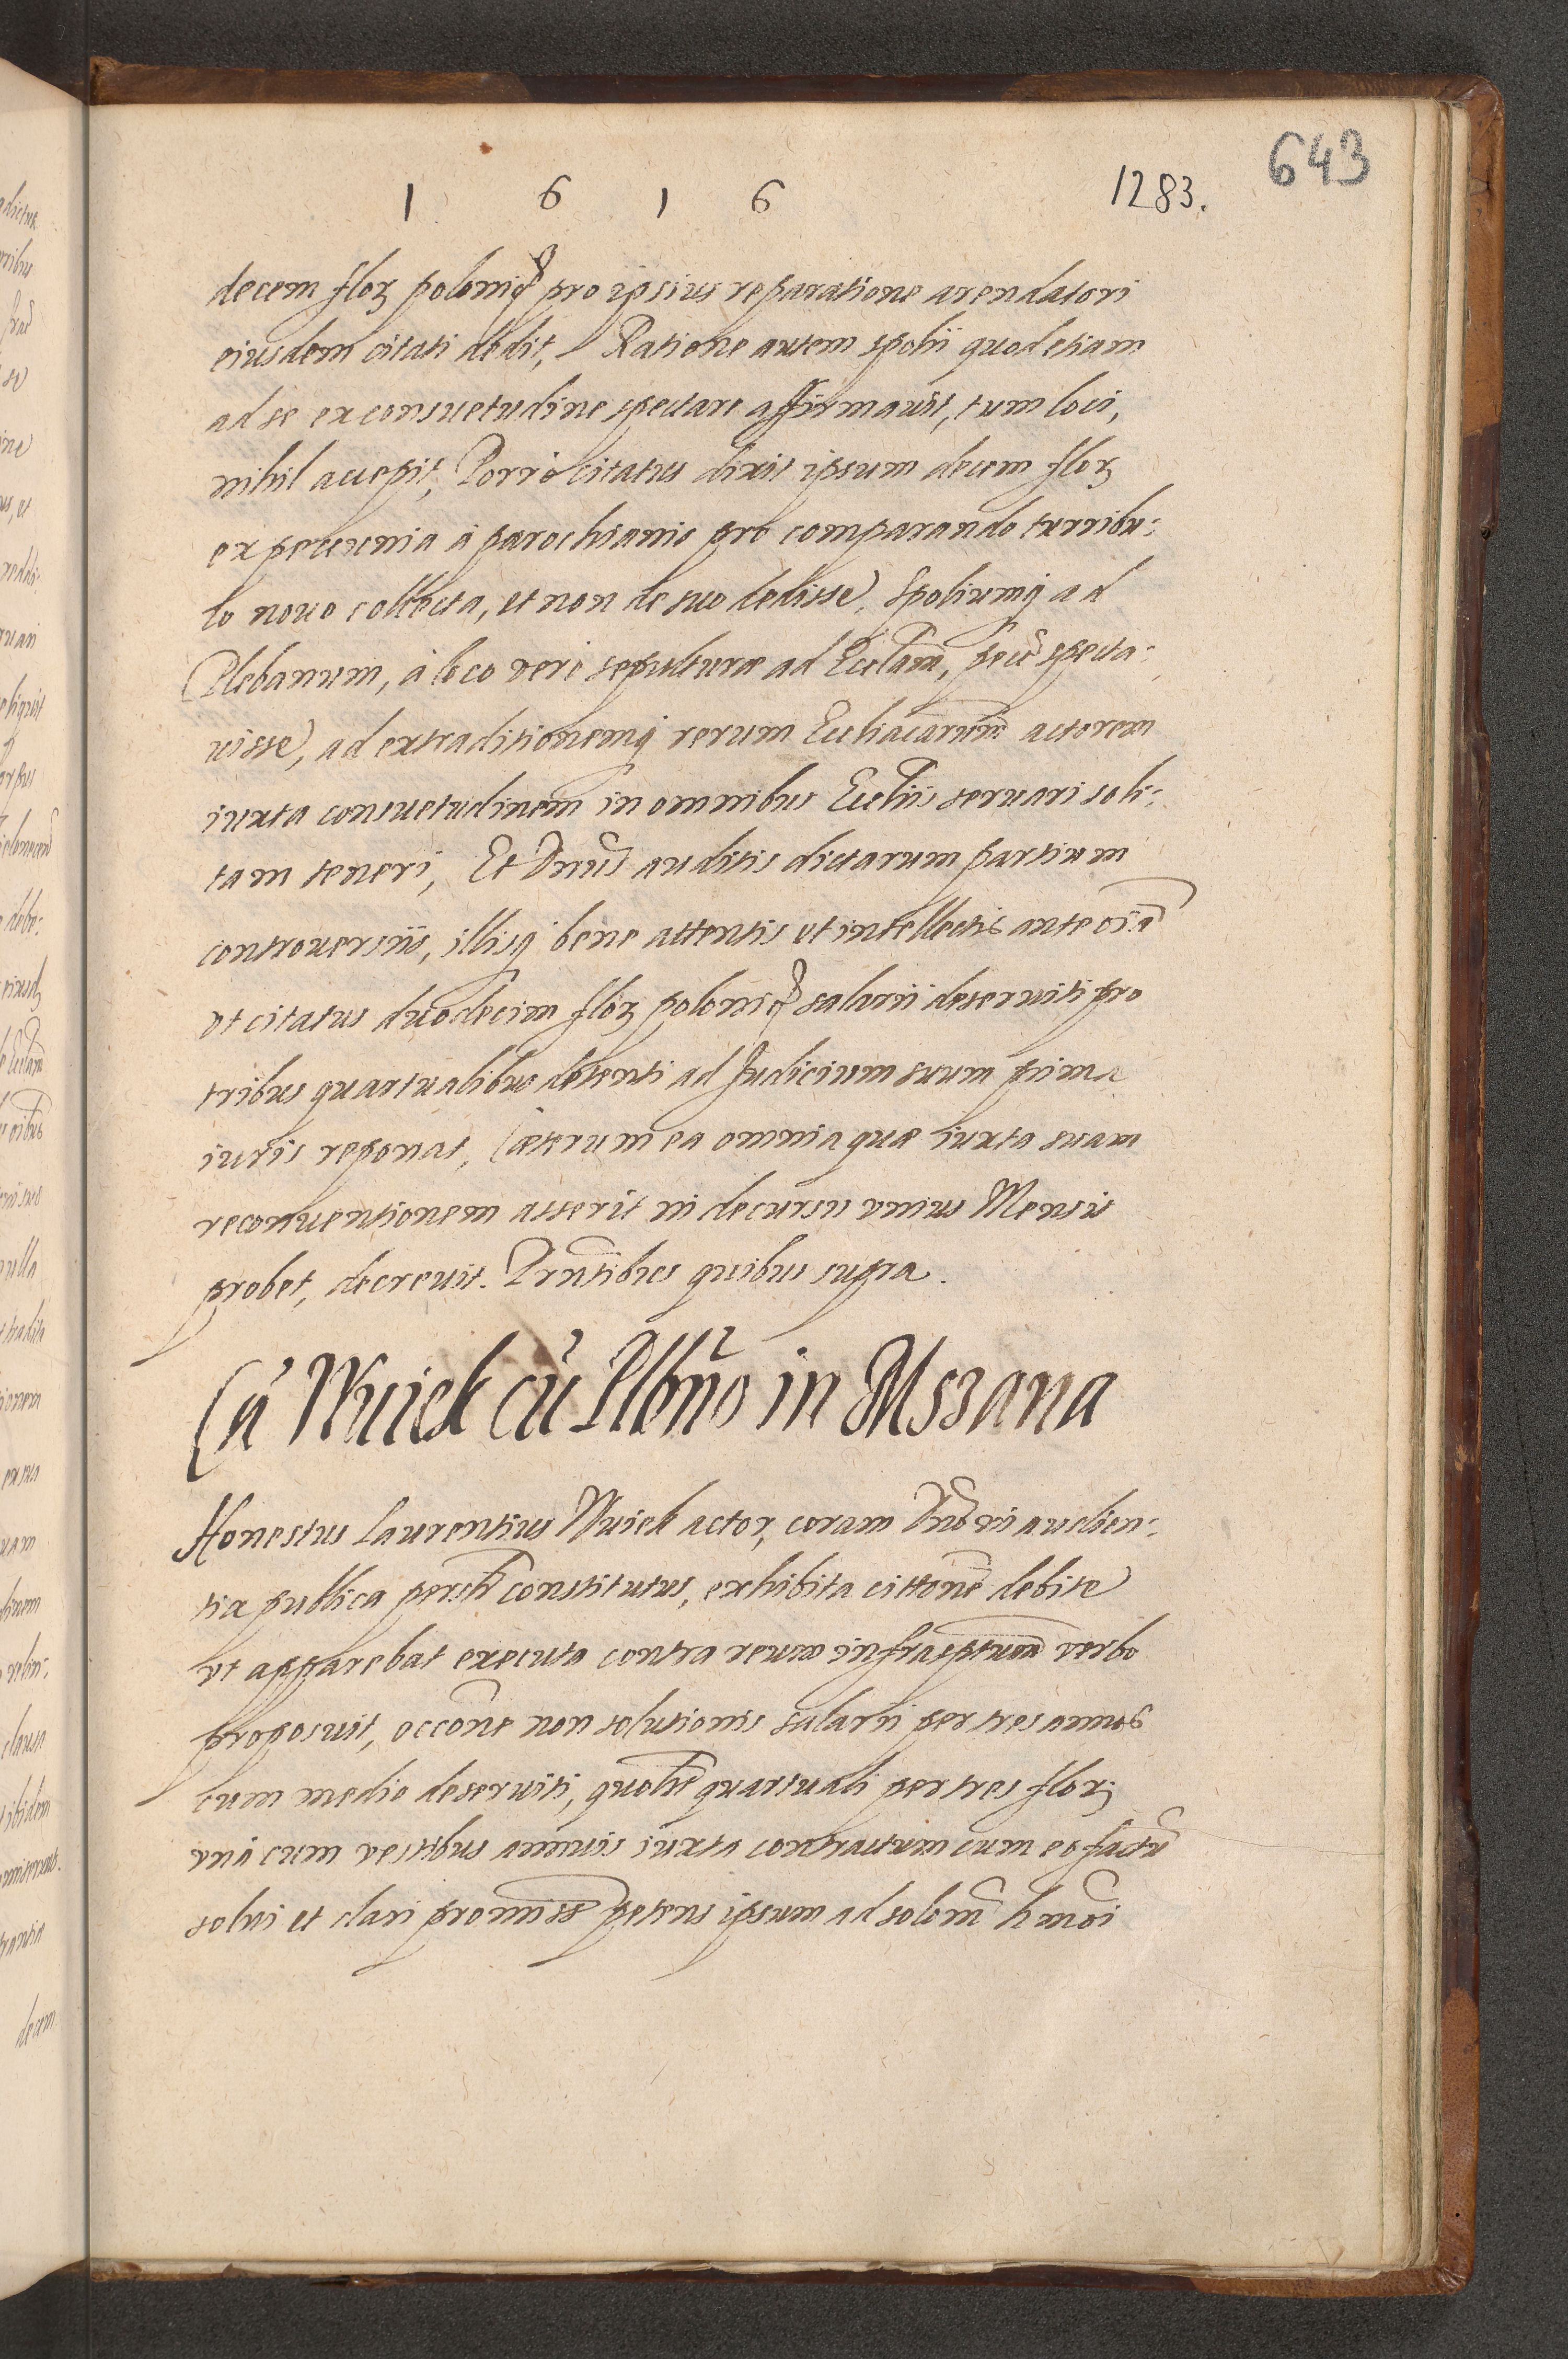 1 6 1 6 1283. 643
decem flor polonic pro ipsius reparatione arendatori
eiusdem citati dedit, Ratione autem spolii quod etiam
ad se ex consuetudine spectare affirmauit, tum loci,
nihil accepit, Porrò citatus dixit ipsum decem flor
ex pecunia à parochianis pro comparando turribu:
lo nouo collecta, et non de suo dedisse, Spoliumq ad
Plebanum, à loco verò sepulturæ ad Ecclam, specta:
uisse, ad extraditionemq rerum Eccliacarum actorem
iuxta consuetudinem in omnibus Eccliis seruari soli:
tam teneri, Et Dnus auditis dictarum partium
controuersiis, illisq bene attentis et intellectis ante oia
vt citatus duodecim flor polonic salarii deseruiti pro
tribus quartualibus detenti ad Judicium suum prima
iuris reponat, Cæterum ea omnia quæ iuxta suam
reconuentionem asserit in decursu vnius Mensis
probet, decreuit. Prntibus quibus supra.
Ca Wuiek cū Plbño in Mszana
Honestus Laurentius Wuiek actor, coram Dno in audien:
tia publica constitutus, exhibita cittone debite
vt apparebat executa contra reum infrasptum verbo
proposuit, occone non solutionis salarii per tres annos
cum medio deseruiti, quolt quartuali per tres flor
vnà cum vestibus annuis iuxta contractum cum eo factū
solui et dari promiss petens ipsum ad solōm hmoi